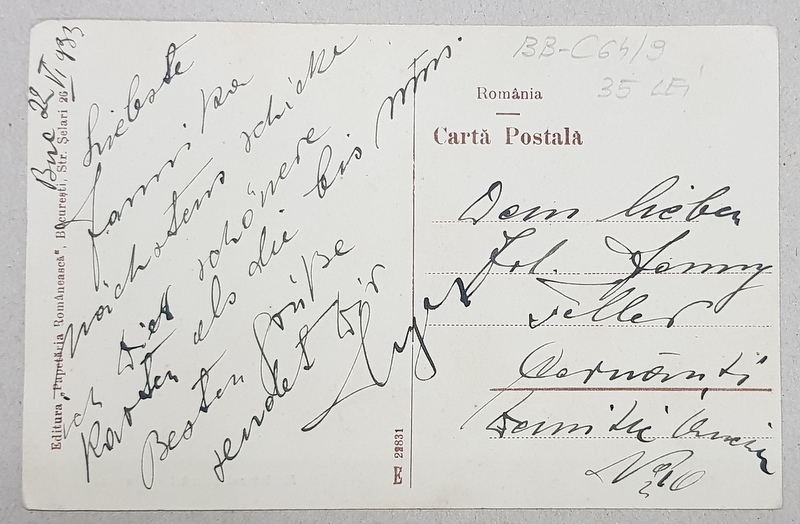 BB-C64/9
35 LEI
România
Cartă Postală
Editura „Papetăria Românească", Bucureşti, Str. Şelari 26
E 22831
Buc 22 VI 933
Liebste
Fannika
nächstens schicke
ich Dir schönere
Karten als die bis
Besten Grüße
sendet Dir
Dem lieben
Frl. Fanny
Teller
Cernăuţi